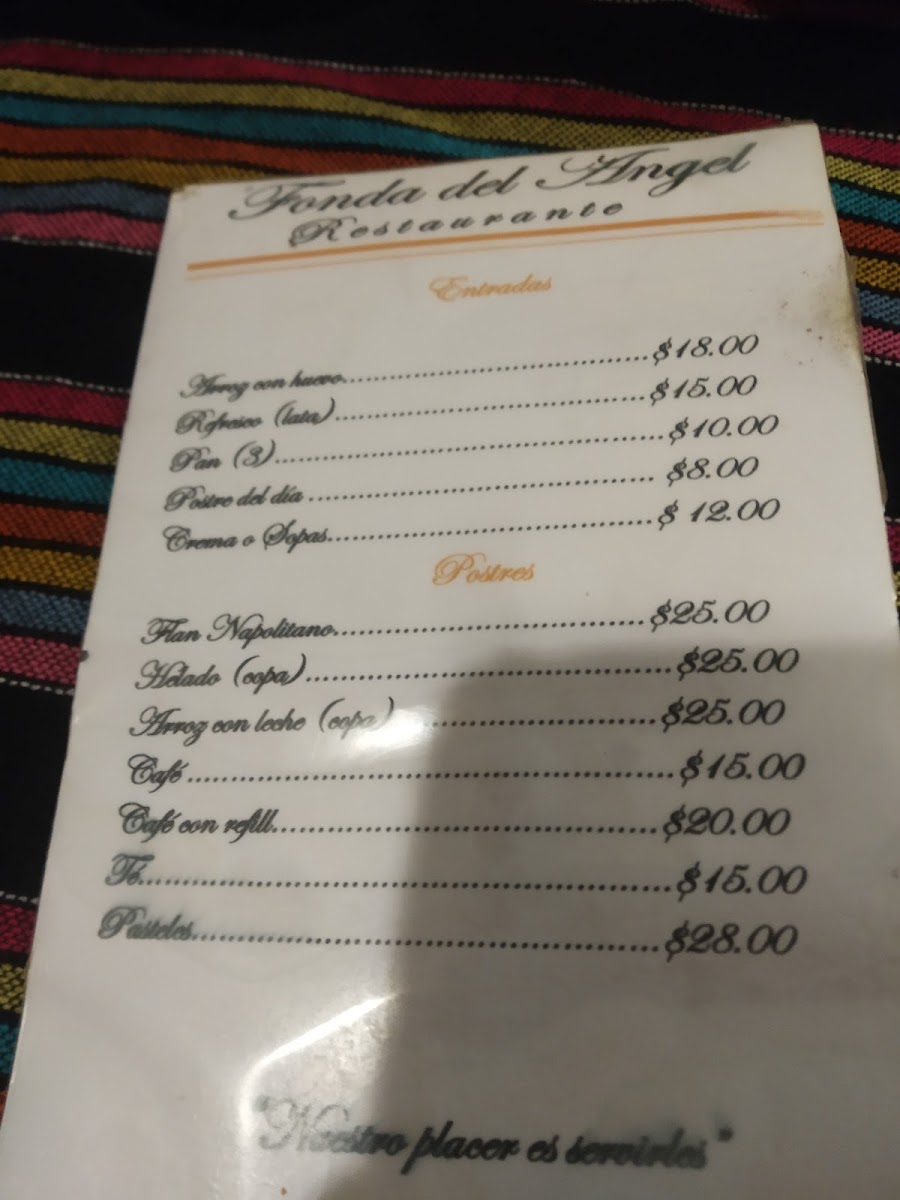 Fonda del Angel
Restaurante
Entradas
Arroz con huevo.......................................$18.00
Refresco (lata).......................................$15.00
Pan (3)................................................$10.00
Postre del día .......................................... $8.00
Crema o Sopas........................................$ 12.00
Postres
Flan Napolitano.....................................$25.00
Helado (copa)..........................................$25.00
Arroz con leche (copa)..............................$25.00
Café ......................................................$15.00
Café con refill...........................................$20.00
Té...........................................................$15.00
Pasteles....................................................$28.00
"Nuestro placer es servirles"